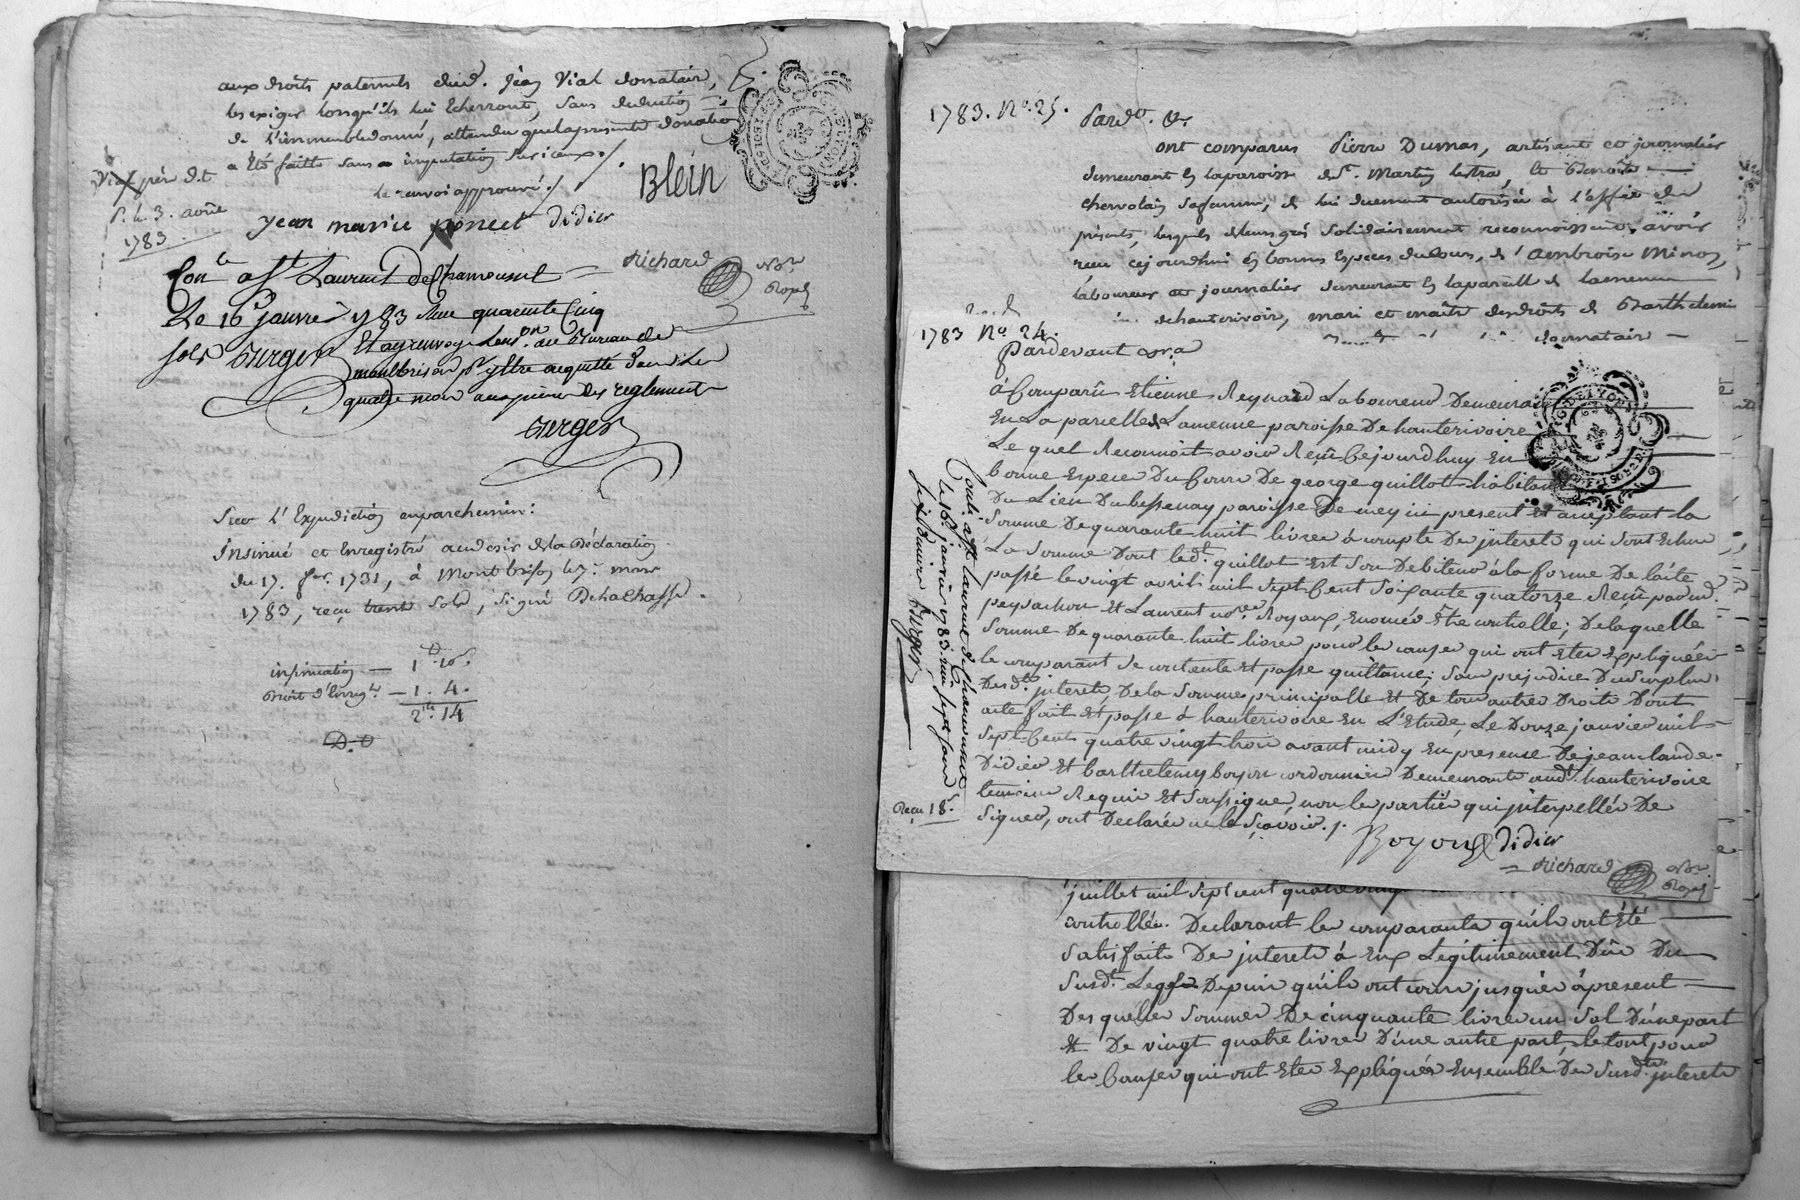 aux droits paternels dud. Jean Vial donataire,
les exiger lorsqu'ils lui Echerront, sans deduction
de l'immeuble donné, attendu que la presente donation
a Eté faitte sans imputation sur iceux ./.
le renvoi approuvé ./
Blein
Vial pér d.t
S. le 3. août
1783.
jean marie poncet Didier
Richard
No.re
Royal
Con.lé a S.t Laurent De Chamousset
Le 16 janvier 1783 Reçu quarente Cinq
sols Berger
Et ay renvoyé Lins.on au Bureau de
montbrison p.r y Etre acquitté dans Les
quatre mois aux peines Des reglements
Berger
Sur l'Expedition en parchemin:
Insinué et Enregistré au desir de la Déclaration
du 17. fer. 1731, à Montbrison le 7. mars
1783, reçu trente Sols, Signé Dechalhasse.
insinuation — 1.# 10.s
Droit d'Enreg.t — 1. 4.
2.# 14
1783. N.o 25.
Pard.t &.
ont comparus Pierre Dumas, artisant et journalier
demeurant En la paroisse de S.t Martin Lestra, et Benoite
Chervolin Sa famme, de lui duement autorisée à l'effet des
présents, lesquels de leurs grés Solidairement reconnoissent avoir
reçu cejourdhui En bonnes Espèces du Cours, d'Ambroise Minot,
laboureur et journalier demeurant En la parcelle de Lamenue
de hauterivoir, mari et maître des droits de Barthelemie
donnataire
1783 N.o 24.
Pardevant &ra
à Comparû Etienne Reynard Laboureur Demeurant
En La parcelle de Lamenue paroisse De hauterivoire
Le quel Reconnoit avoir Reçû Cejourdhuy En
bonne Espece Du Cours De george quillot habitant
Du Lieu Du bessenay paroisse De meys ici present et acceptant la
Somme De quarante huit livres à compte Des jnterets qui sont Echus
La Somme Dont led.t quillot Est Son Debiteur à la forme De l'acte
passé le vingt avril mil Sept Cent Soixante quatorze Reçû pard.t
peyrachon Et Laurent no.res Royaux, Enoncé Etre controllé; De laquelle
Somme De quarante huit livres pour les causes qui ont Etés Expliquées
le comparant Se contente Et passe quittance; Sans prejudice Du Surplus
Desd.ts jnterets De la Somme principalle Et De tous autres Droits Dont
acte fait Et passé à hauterivoire En L'Etude, Le Douze janvier mil
Sept Cent quatre vingt trois avant midy En presence De jean claude
Didier Et barthelemy boyon cordonnier Demeurants aud.t hauterivoire
temoins Requis Et Soussignés, non les parties qui jnterpellées De
Signer, ont Declarées ne le Sçavoir ./.
Boyon Didier
Richard
No.re
Royal
Contr. à S.t laurent de chamousset
le 16 janvier 1783. reçu sept sous
Six Deniers Berger
Reçu 18.s
juillet mil Sept cent quatre ving
controllés. Declarant les comparants qu'ils ont Eté
Satisfaits Des jnterets à Eux Legitimement Dûs Du
Susd.t Legs Depuis qu'ils ont couru jusques à present
Desquelles Sommes De cinquante livres un Sol D'une part
Et De vingt quatre livres D'une autre part, le tout pour
les Causes qui ont Etés Expliqués Ensemble Des Susd.ts jnterets